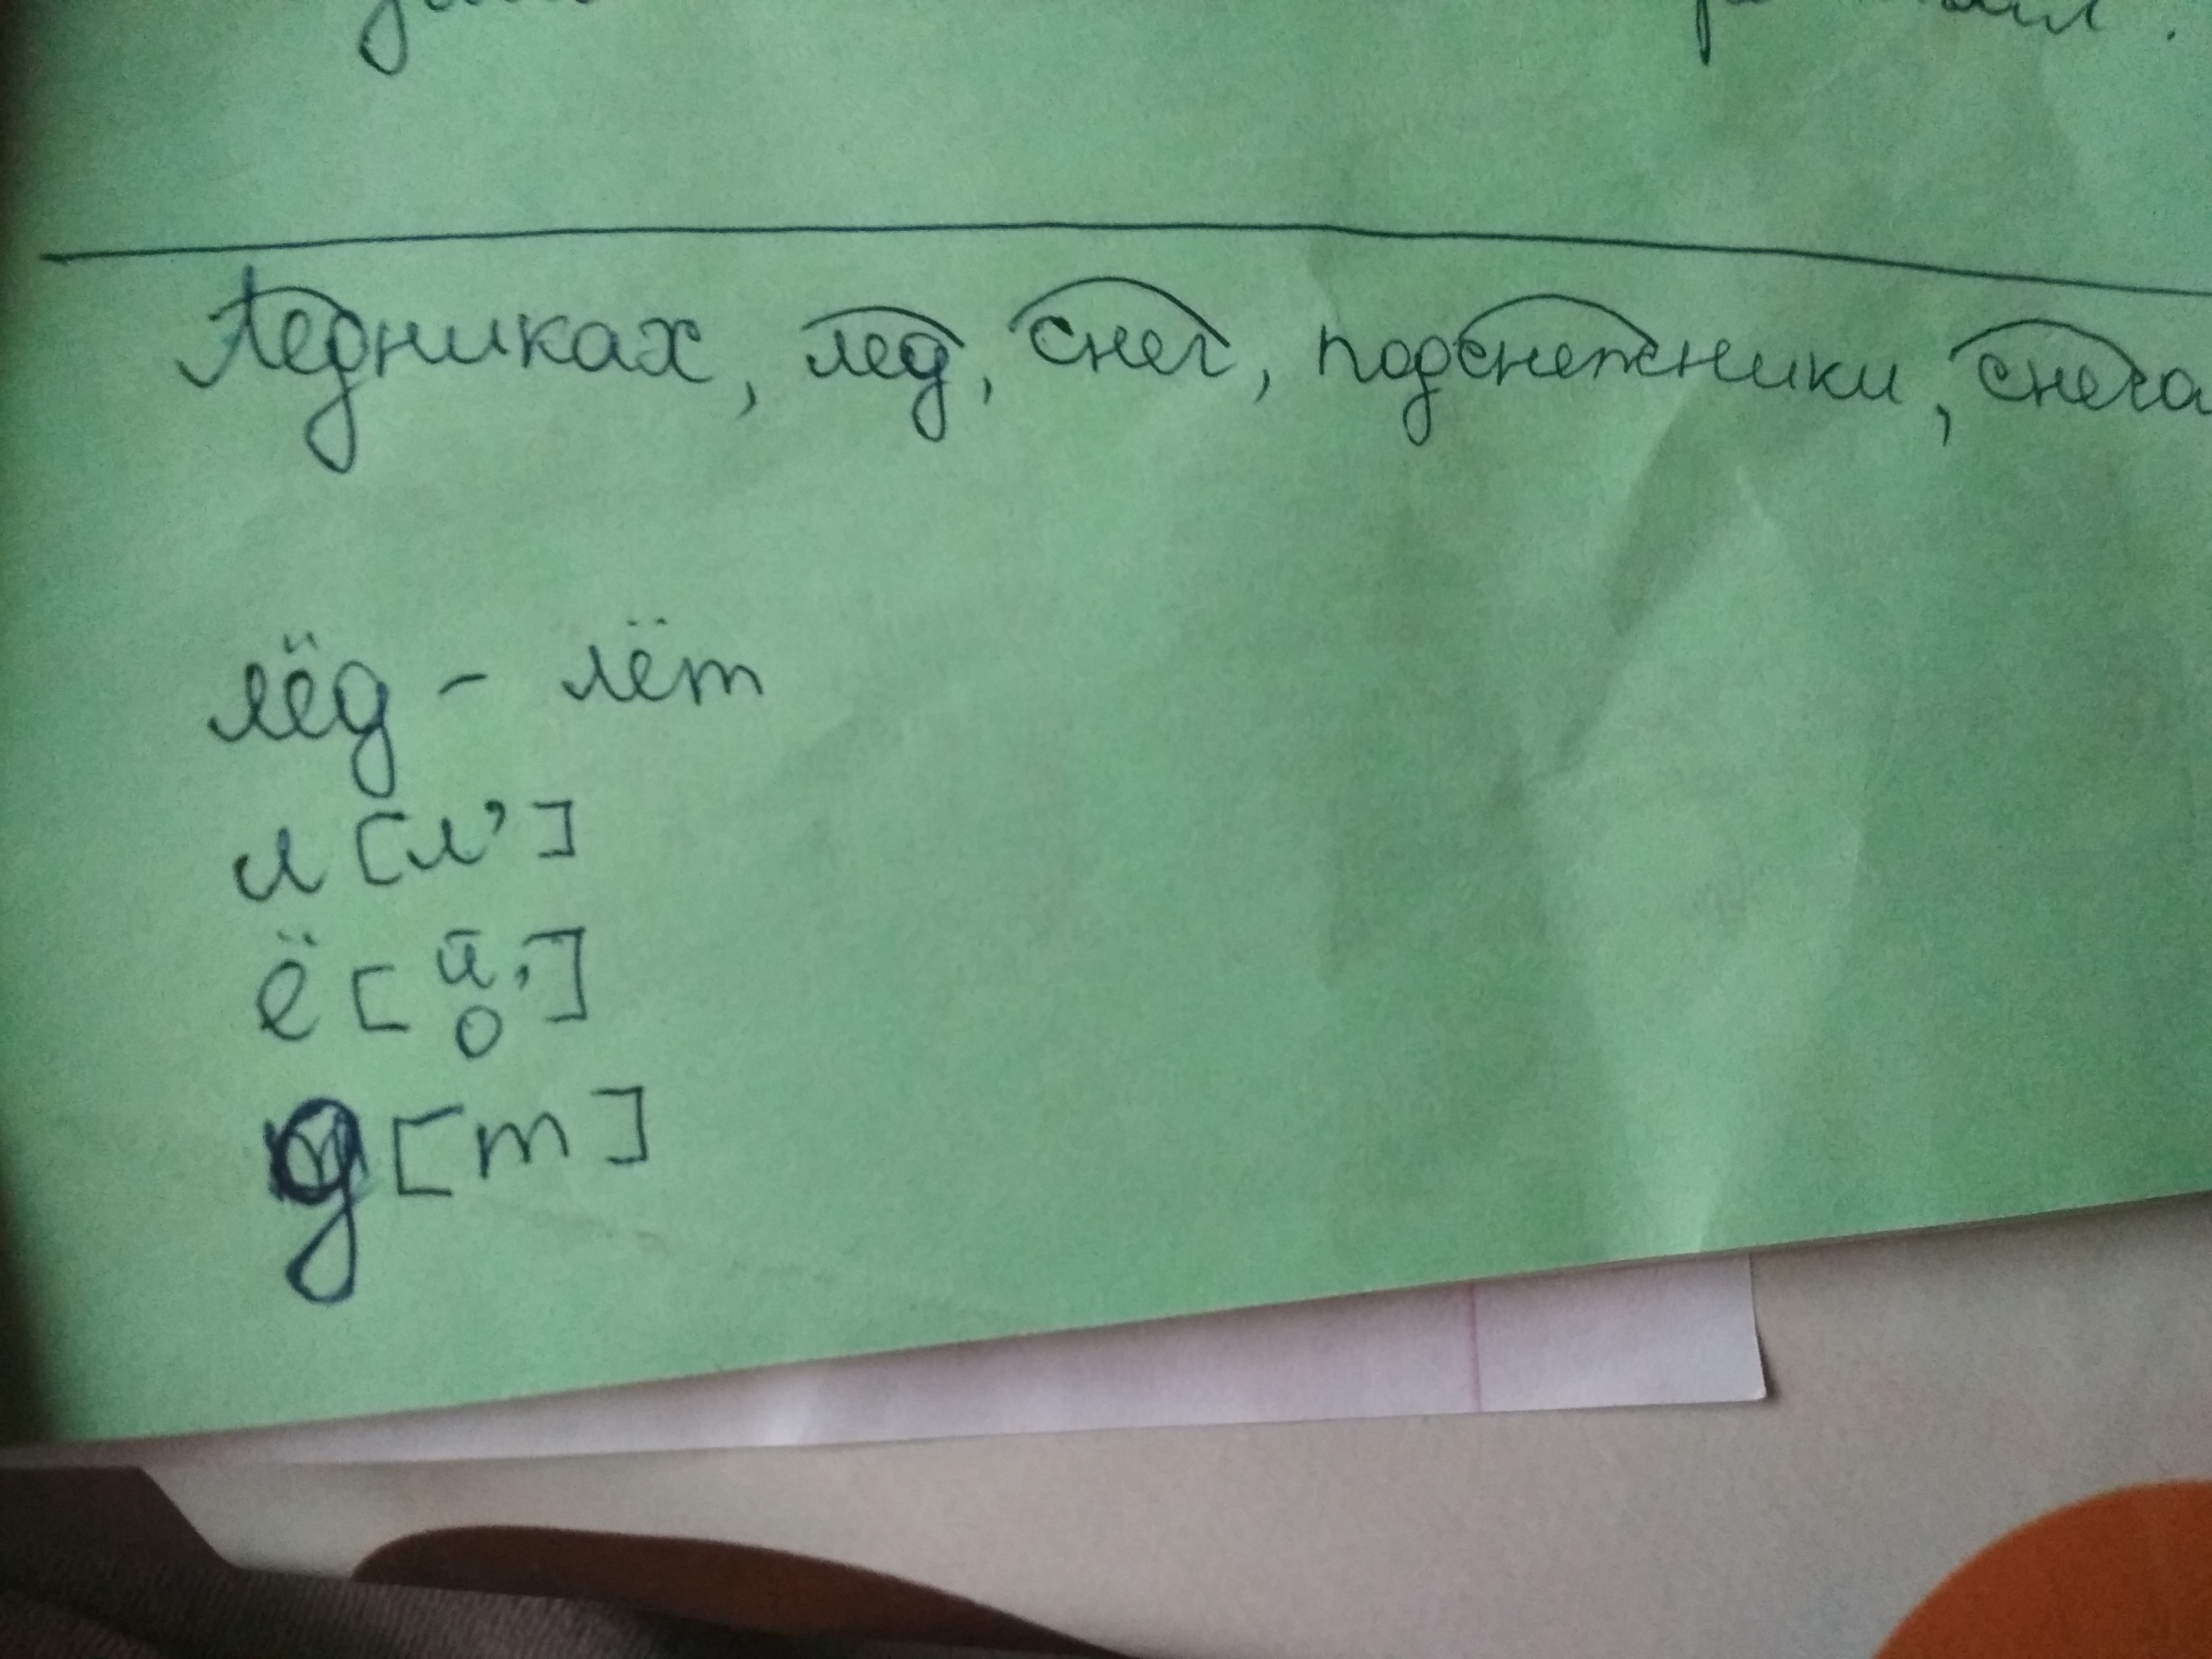 Ледниках, лед, снег, подснежники, снега
лёд - лёт
л [л']
ё [й'
о]
д [т]